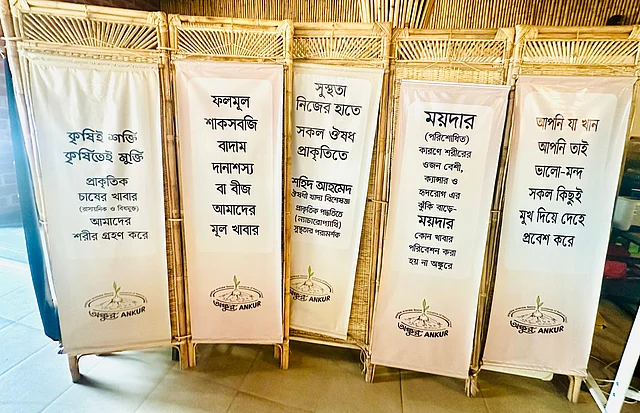 কৃষিই শক্তি
কৃষিতেই মুক্তি
প্রাকৃতিক
চাষের খাবার
(রাসায়নিক ও বিষমুক্ত)
আমাদের
শরীর গ্রহণ করে
অঙ্কুর ANKUR
ফলমূল
শাকসবজি
বাদাম
দানাশস্য
বা বীজ
আমাদের
মূল খাবার
অঙ্কুর ANKUR
সুস্থতা
নিজের হাতে
সকল ঔষধ
প্রাকৃতিতে
শহিদ আহমেদ
ঔষধী খাদ্য বিশেষজ্ঞ
প্রাকৃতিক পদ্ধতিতে
(ন্যাচারোপ্যাথি)
সুস্থতার পরামর্শক
অঙ্কুর ANKUR
ময়দার
(পরিশোধিত)
কারণে শরীরের
ওজন বেশী,
ক্যান্সার ও
হৃদরোগ এর
ঝুঁকি বাড়ে-
ময়দার
কোন খাবার
পরিবেশন করা
হয় না অঙ্কুরে
অঙ্কুর ANKUR
আপনি যা খান
আপনি তাই
ভালো-মন্দ
সকল কিছুই
মুখ দিয়ে দেহে
প্রবেশ করে
অঙ্কুর ANKUR